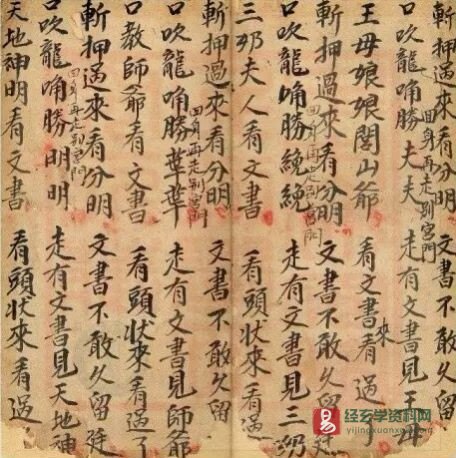 斬押過來看分明 文書不敢久留
口吹龍唃勝夫夫 走有文書見王母
回身再走别宮門
王母娘娘閭山爺 看文書來看過了
斬押過來看分明 文書不敢久留延
回身再走别宮門
口吹龍唃勝絕絕 走有文書見三奶
三奶夫人看文書 看頭狀來看過
斬押過來看分明 文書不敢久留
回身再走别宮門
口吹龍唃勝 走有文書見師爺
口教師爺看文書 看頭狀來看過了
斬押過來看分明 文書不敢久留延
回身再走别宮門
口吹龍唃勝明明 走有文書見天地神
天地神明看文書 看頭狀來看過
易 经玄学资料网
yijingxuanxue